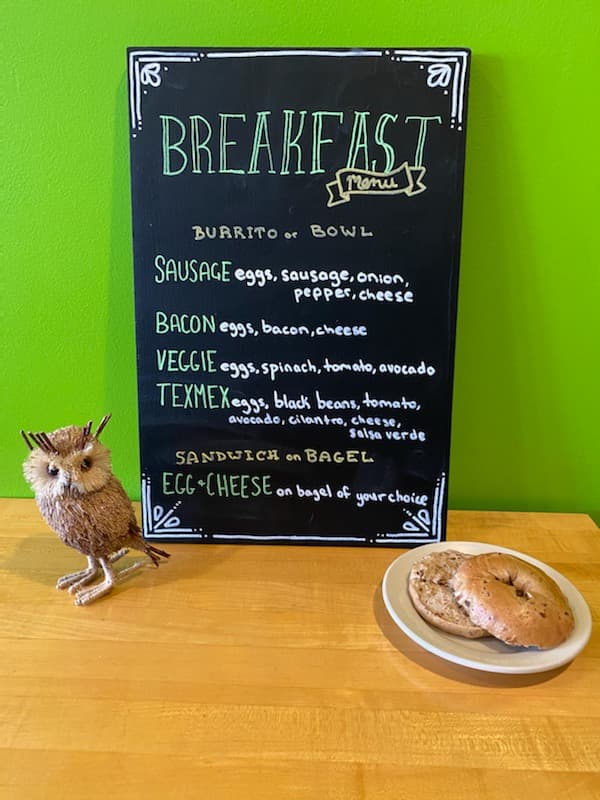 BREAKFAST
Menu
BURRITO or BOWL
SAUSAGE eggs, sausage, onion,
pepper, cheese
BACON eggs, bacon, cheese
VEGGIE eggs, spinach, tomato, avocado
TEXMEX eggs, black beans, tomato,
avocado, cilantro, cheese,
salsa verde
SANDWICH on BAGEL
EGG+CHEESE on bagel of your choice